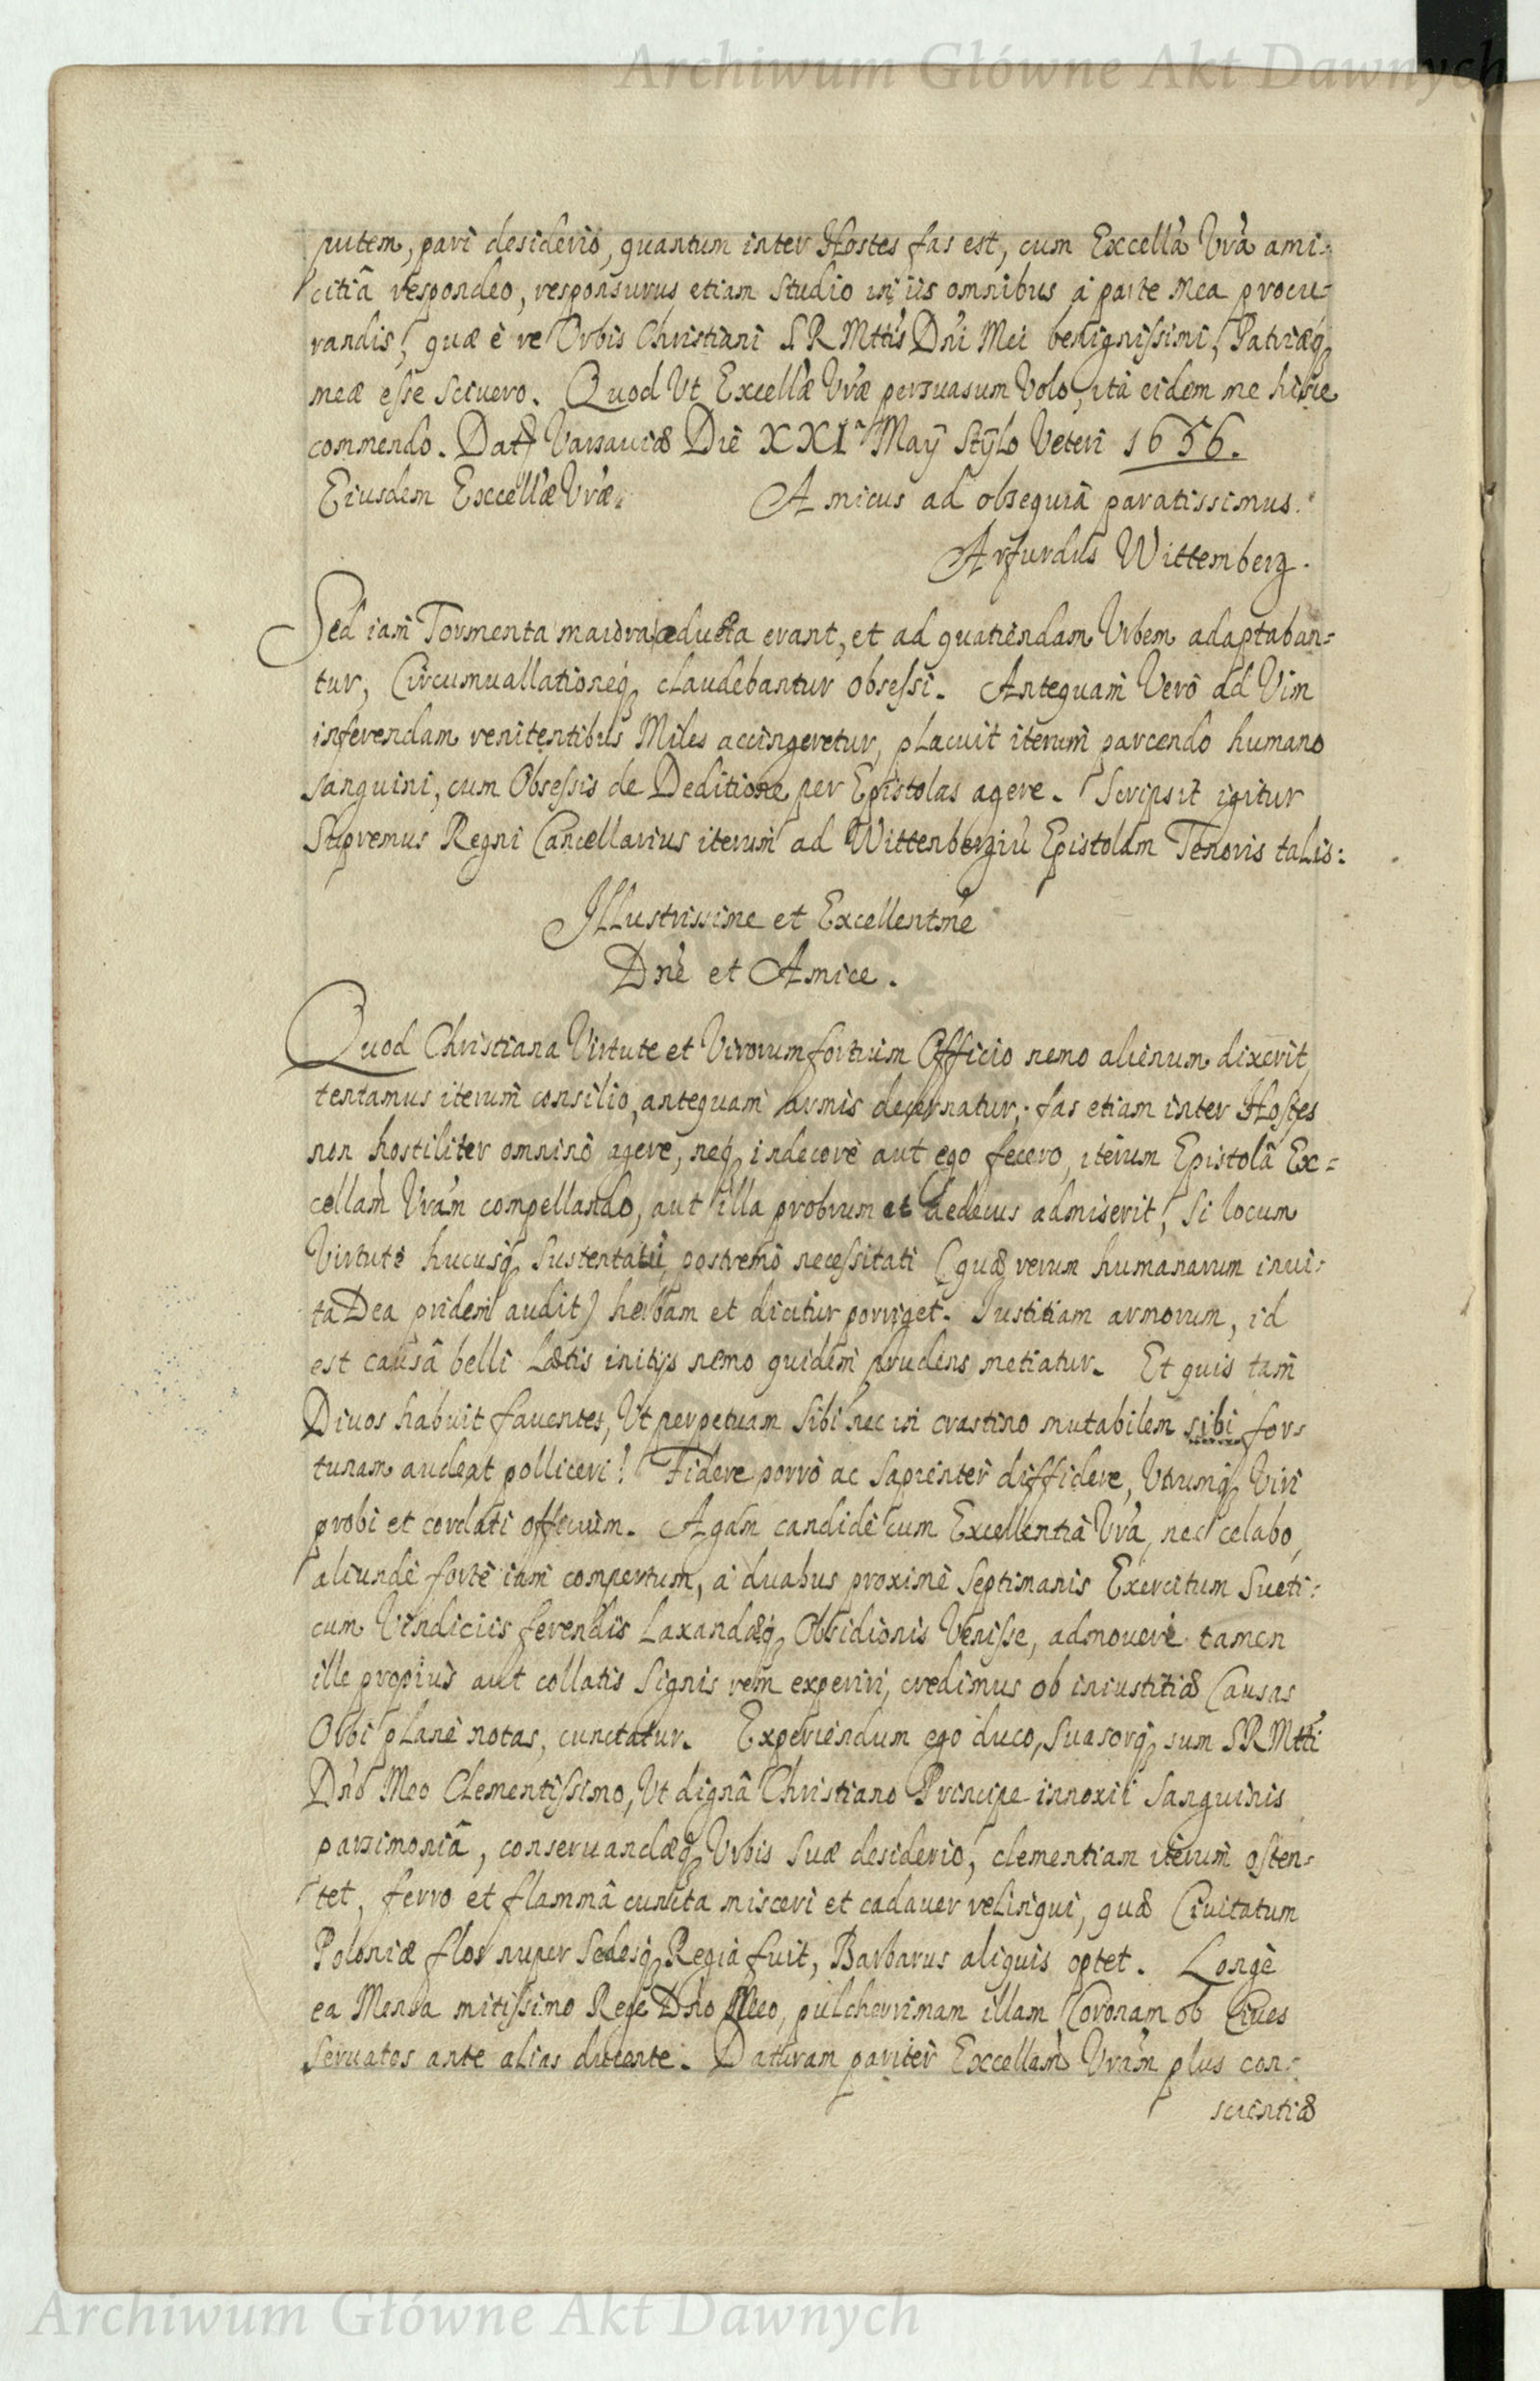 Archiwum Główne Akt Dawnych
putem, pari desiderio, quantum inter Hostes fas est, cum Excellâ Vrâ ami-
citiâ respondeo, responsurus etiam studio in iis omnibus à parte mea procu-
randis, quæ è re Orbis Christiani S R Mttis Dni Mei benignissimi, Patriæq
meæ esse scivero. Quod Vt Excellæ Vræ persuasum Volo, ità eidem me hisce
commendo. Dat Varsaviæ Die XXI May Stÿlo Veteri 1656.
Eiusdem Excellæ Vræ. Amicus ad obsequia paratissimus.
Arfurdus Wittemberg.
Sed iam Tormenta maiora aducta erant, et ad quatiendam Vrbem adaptaban=
tur, Circumuallationeq claudebantur obsessi. Antequam Vero ad Vim
inferendam renitentibus Miles accingeretur, placuit iterum parcendo humano
sanguini, cum Obsessis de Deditione per Epistolas agere. Scripsit igitur
Supremus Regni Cancellarius iterum ad Wittenbergiũ Epistolam Tenoris talis:
Illustrissime et Excellentme
Dne et Amice.
Quod Christiana Virtute et Virorum fortium Officio nemo alienum dixerit,
tentamus iterum consilio, antequam armis decernatur; fas etiam inter Hostes
non hostiliter omninò agere, neq indecorè aut ego fecero, iterum Epistolâ Ex=
cellam Vram compellando, aut illa probrum et dedecus admiserit, si locum
Virtute hucusq sustentatũ, postremò necessitati (quæ rerum humanarum inui-
ta Dea pridem audit) herbam et dicitur porriget. Iustitiam armorum, id
est causâ belli Lætis initijs nemo quidem prudens metiatur. Et quis tam
Diuos habuit fauentes, Vt perpetuam sibi nec in crastino mutabilem sibi for-
tunam audeat polliceri! Fidere porrò ac sapienter diffidere, Vtrumq Viri
probi et cordati officium. Agam candidè cum Excellentiâ Vrâ, nec celabo,
aliundè fortè iam compertum, à duabus proximè septimanis Exercitum Sueti-
cum Vindiciis ferendis Laxandæq Obsidionis Venisse, admouere tamen
ille propius aut collatis signis rem experiri, credimus ob iniustitiæ Causas
Orbi planè notas, cunctatur. Experiendum ego duco, suasorq sum S R Mtti
Dno Meo Clementissimo, Vt dignâ Christiano Principe innoxii sanguinis
parsimoniâ, conseruandæq Vrbis suæ desiderio, clementiam iterum osten-
tet, ferro et flammâ cuncta misceri et cadauer relinqui, quæ Ciuitatum
Poloniæ flos nuper sedesq Regia fuit, Barbarus aliquis optet. Longè
ea Mensa mitissimo Rege Dno Meo, pulcherrimam illam Coronam ob Ciues
seruatos ante alias ducente. Daturam pariter Excellam Vram plus con-
scientiæ
Archiwum Główne Akt Dawnych